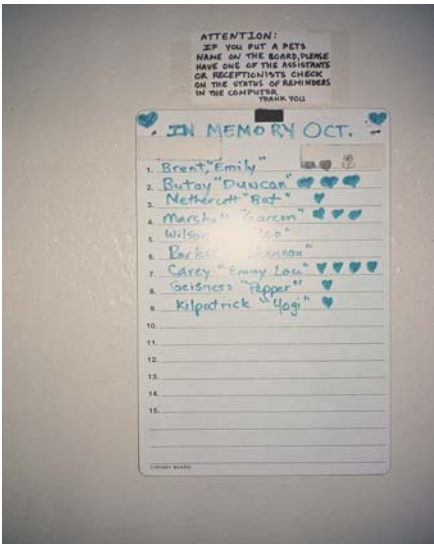 ATTENTION:
IF YOU PUT A PETS
NAME ON THE BOARD, PLEASE
HAVE ONE OF THE ASSISTANTS
OR RECEPTIONISTS CHECK
ON THE STATUS OF REMINDERS
IN THE COMPUTER
THANK YOU
IN MEMORY OCT.
1. Brent, "Emily"
2. Butay "Duncan"
3. Nethercutt "Bat"
4.
5. Wilson
6.
7. Carey "Emmy Lou"
8. Geisness "Pepper"
9. Kilpatrick "Yogi"
10.
11.
12.
13.
14.
15.